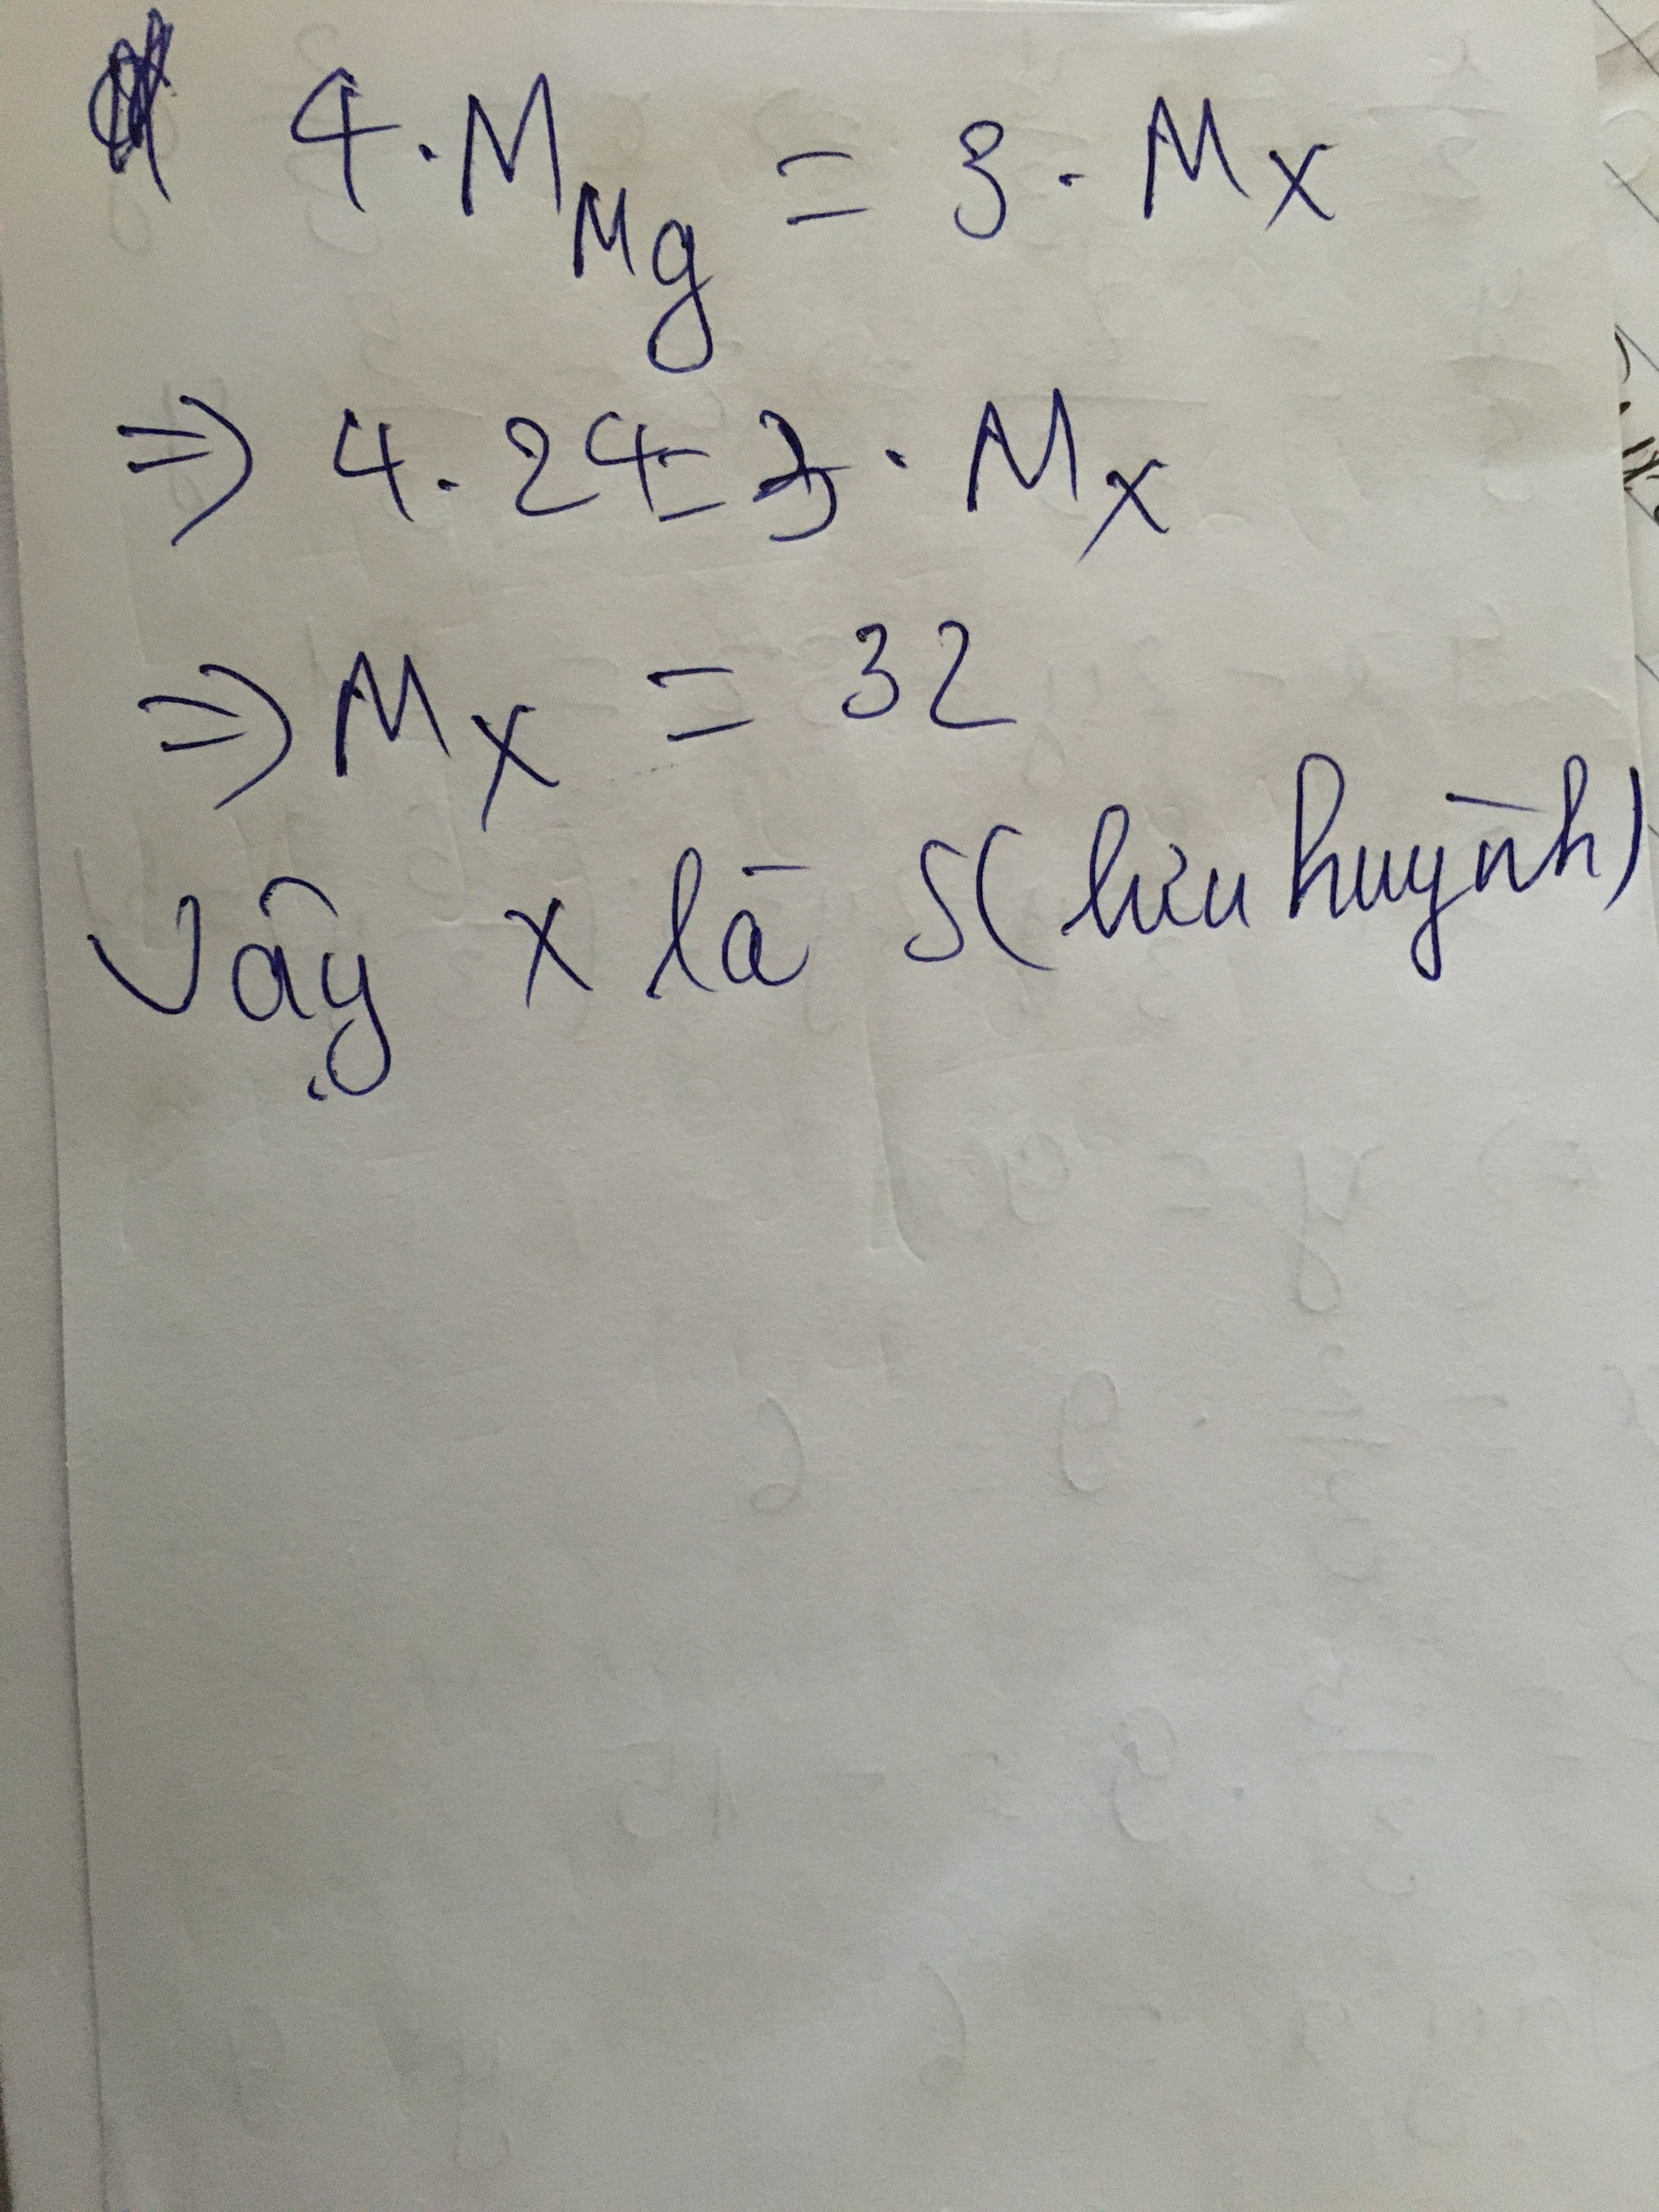 4 . M_Mg = 3 . M_X
=> 4 . 24 = 3 . M_X
=> M_X = 32
Vậy X là S( lưu huỳnh)